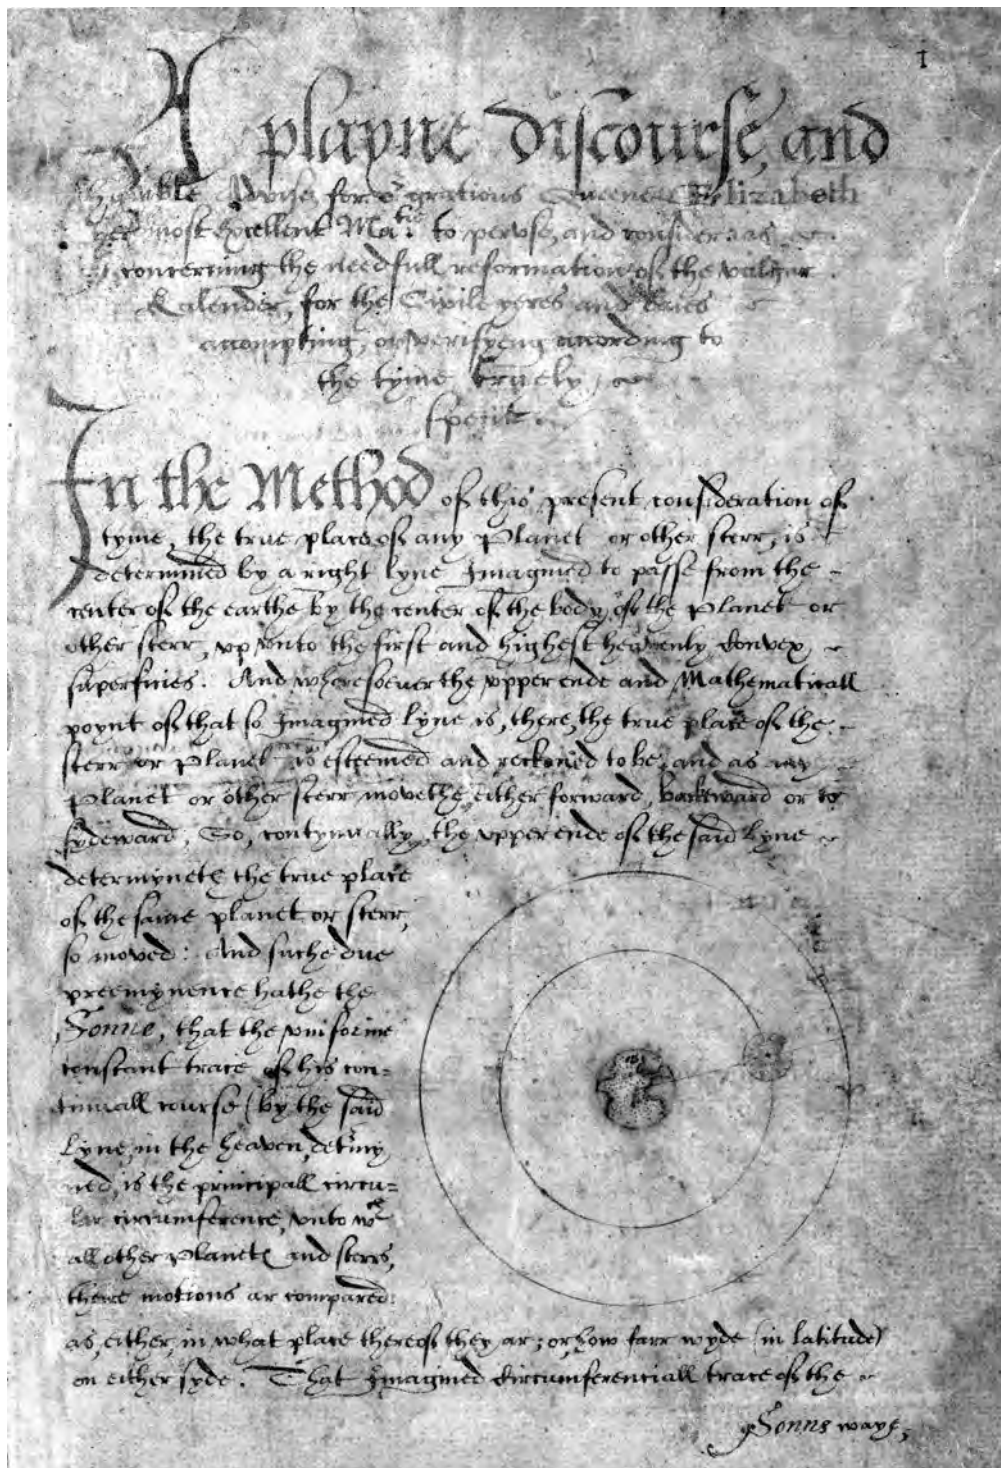 1
A playne discourse, and
humble Advise, for oʳ gratious Queene Elizabeth
her most Excellent Maᵗⁱᵉ to peruse, and consider: as
concerning the needfull reformation of the vulgar
Kalender, for the Civile yeres and daies
accompting, or verifyeng according to
the tyme truely
spent.
In the Method of this present consideration of
tyme, the true place of any Planet or other sterr, is
determined by a right lyne Imagined to passe from the
center of the earthe by the center of the body of the Planet or
other sterr, up unto the first and highest heavenly Convex
superficies. And wheresoever the upper ende and Mathematicall
poynt of that so Imagined lyne is, there, the true place of the
sterr or Planet is esteemed and reckoned to be, and as any
Planet or other sterr movethe, either forward, backward or to
sydeward, So, contynually, the upper ende of the said lyne
determynethe the true place
of the same planet or sterr,
so moved: And suche due
preemynence hathe the
Sonne, that the uniforme
constant trace of his con=
tinuall course (by the said
lyne, in the heaven, determy
ned, is the principall circu=
lar circumference, unto wᶜʰ
all other Planets and sterrs,
theire motions ar compared:
as, either, in what place thereof they ar; or, how farr wyde (in latitude)
on either syde. That Imagined Circumferenciall trace of the
Sonns waye,